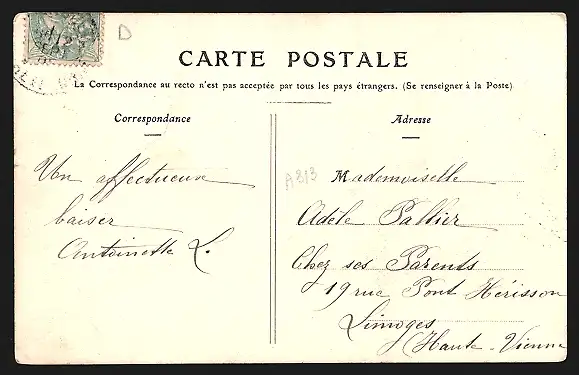 D
CARTE POSTALE
La Correspondance au recto n'est pas acceptée par tous les pays étrangers. (Se renseigner à la Poste)
Correspondance
Un affectueux
baiser
Antoinette L.
Adresse
A813
Mademoiselle
Adèle Pallier
Chez ses Parents
19 rue Pont Hérisson
Limoges
(Haute-Vienne